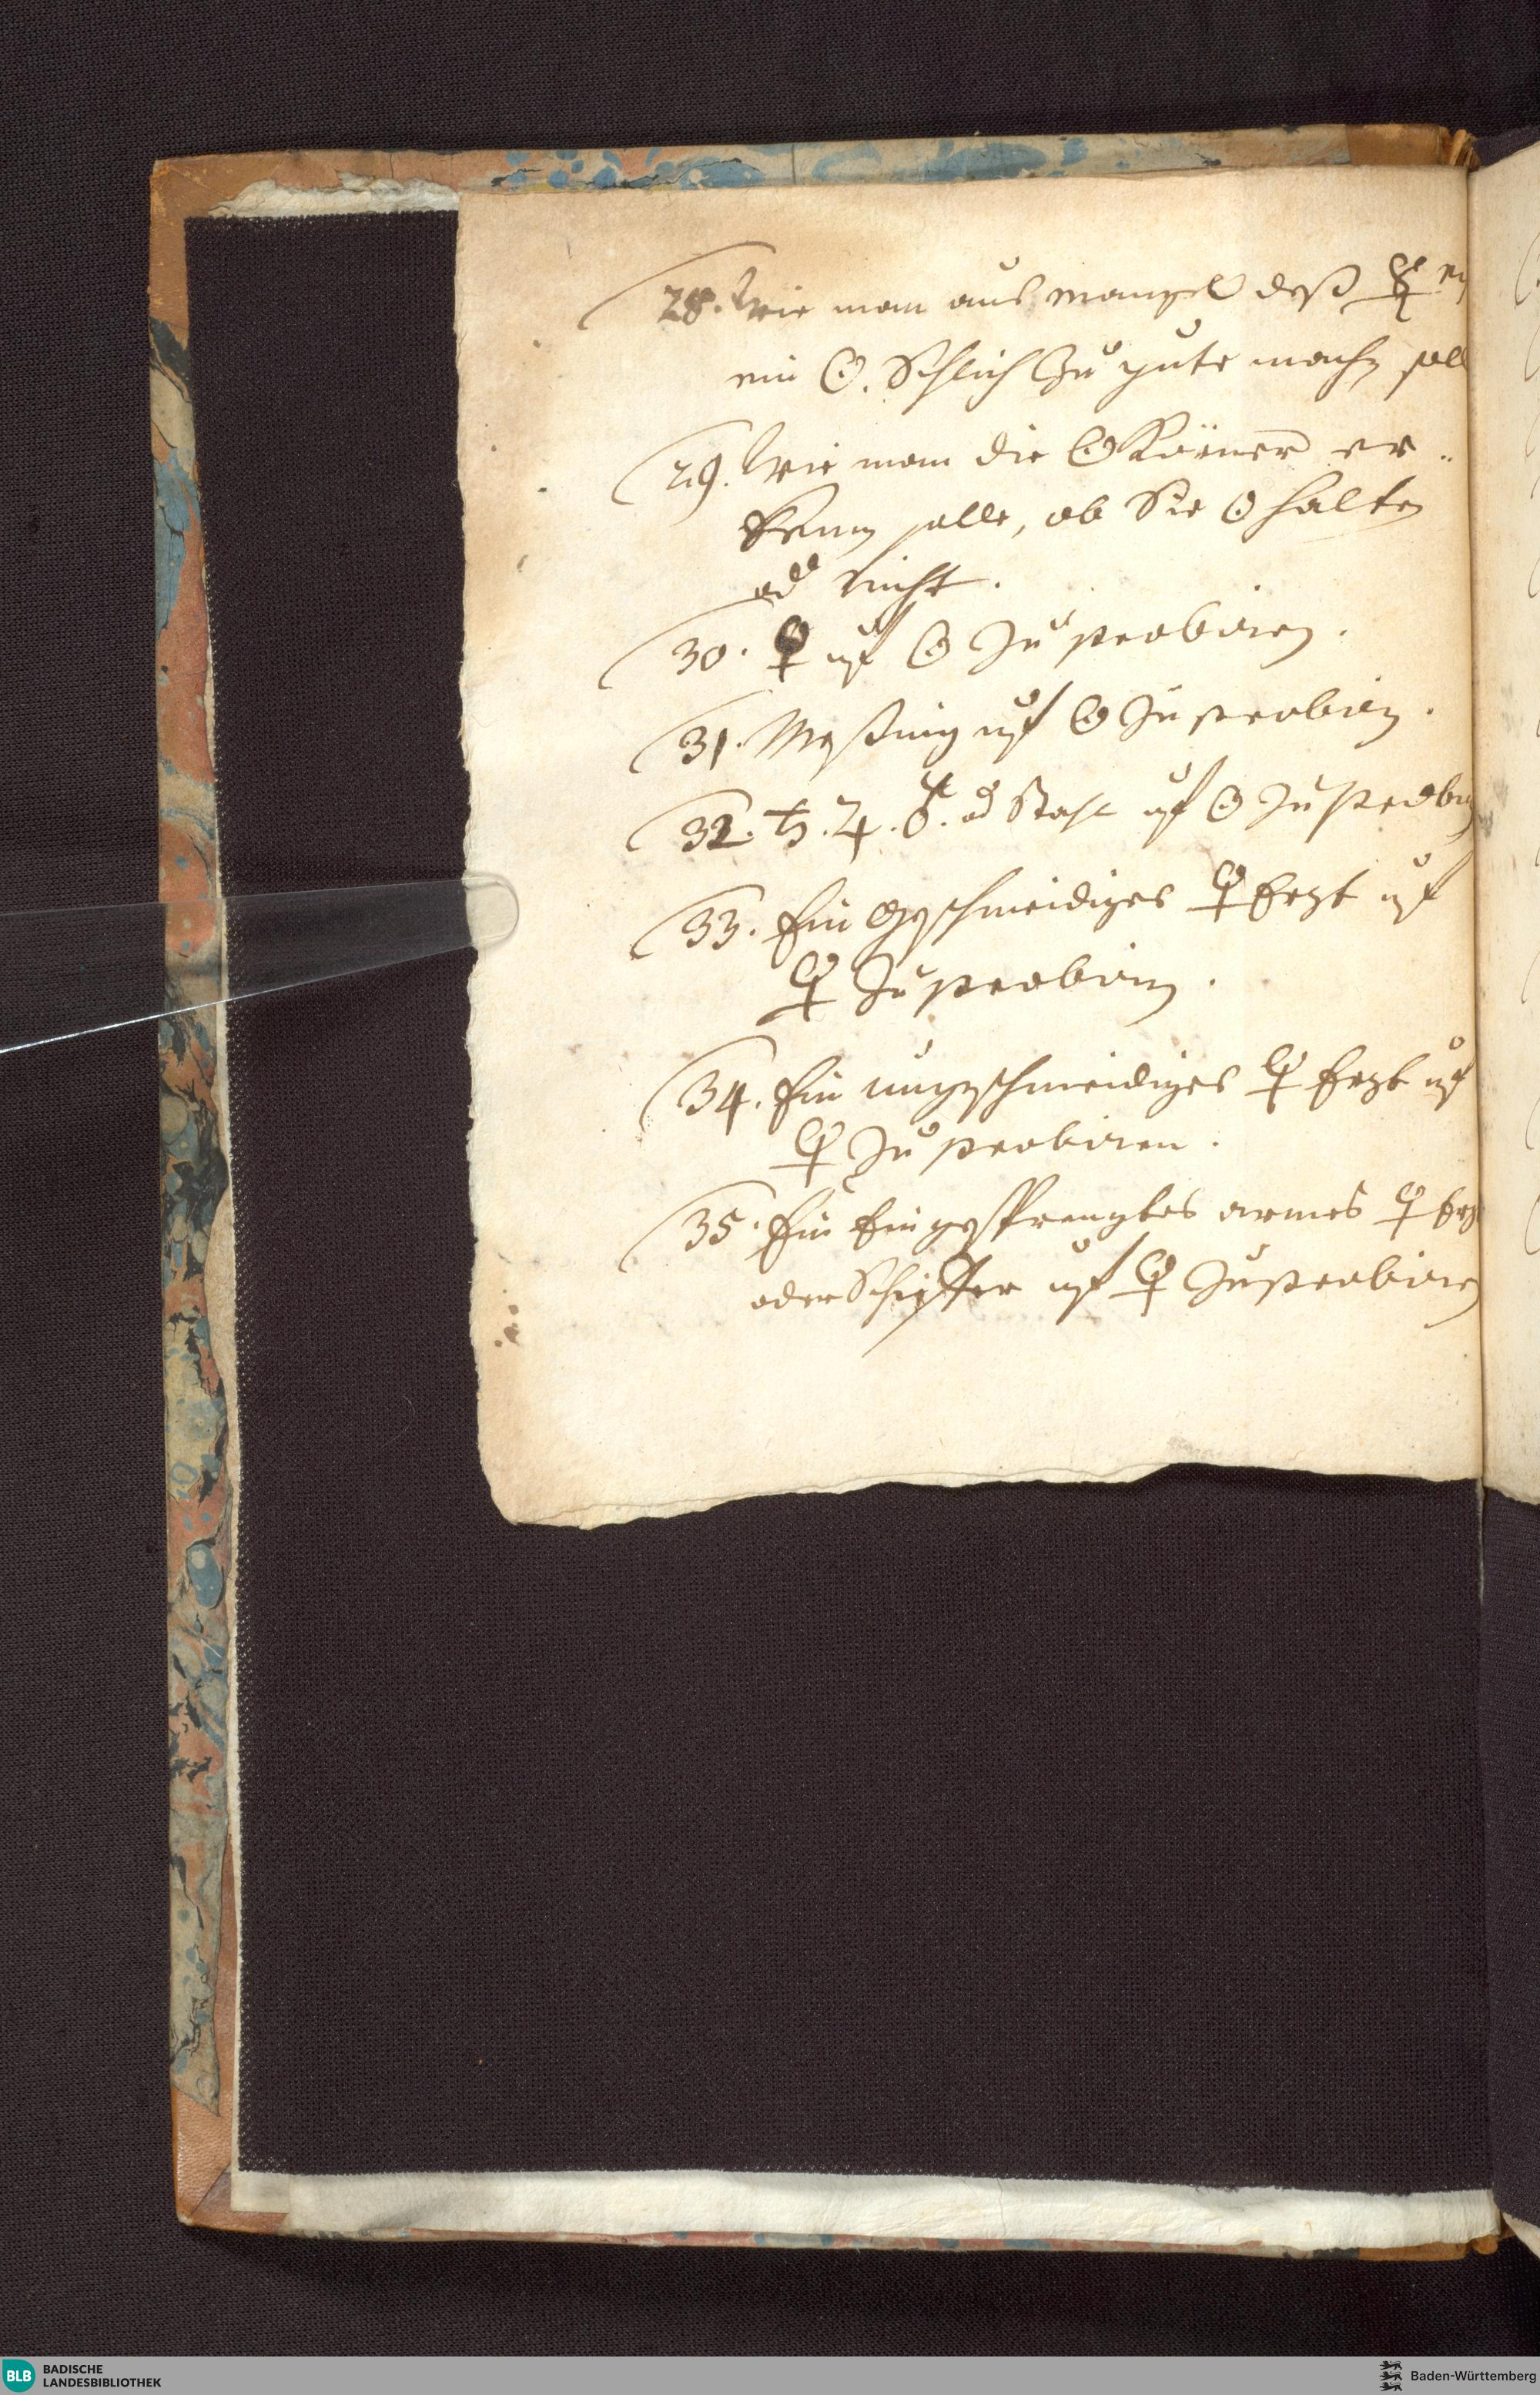 28. Wie man aus mangel deß ☿
ein ☉. Schlich Zu gute machen soll
29. Wie man die ☉ Körner er-
kenen solle, ob Sie ☉ halten
od nicht.
30. ♀ uf ☉ Zu probiren.
31. Meßing uf ☉ Zu probiren.
32. ♄. ♃. ♂. od Stahl uf ☉ Zu probiren
33. Ein Geschmeidiges ♀ Erzt uf
♀ Zu probiren.
34. Ein ungeschmeidiges ♀ Erzt uf
♀ Zu probiren.
35. Ein Eingesprengtes armes ♀ Erz
oder Schiffer uf ♀ Zu probiren
BLB BADISCHE
LANDESBIBLIOTHEK
Baden-Württemberg